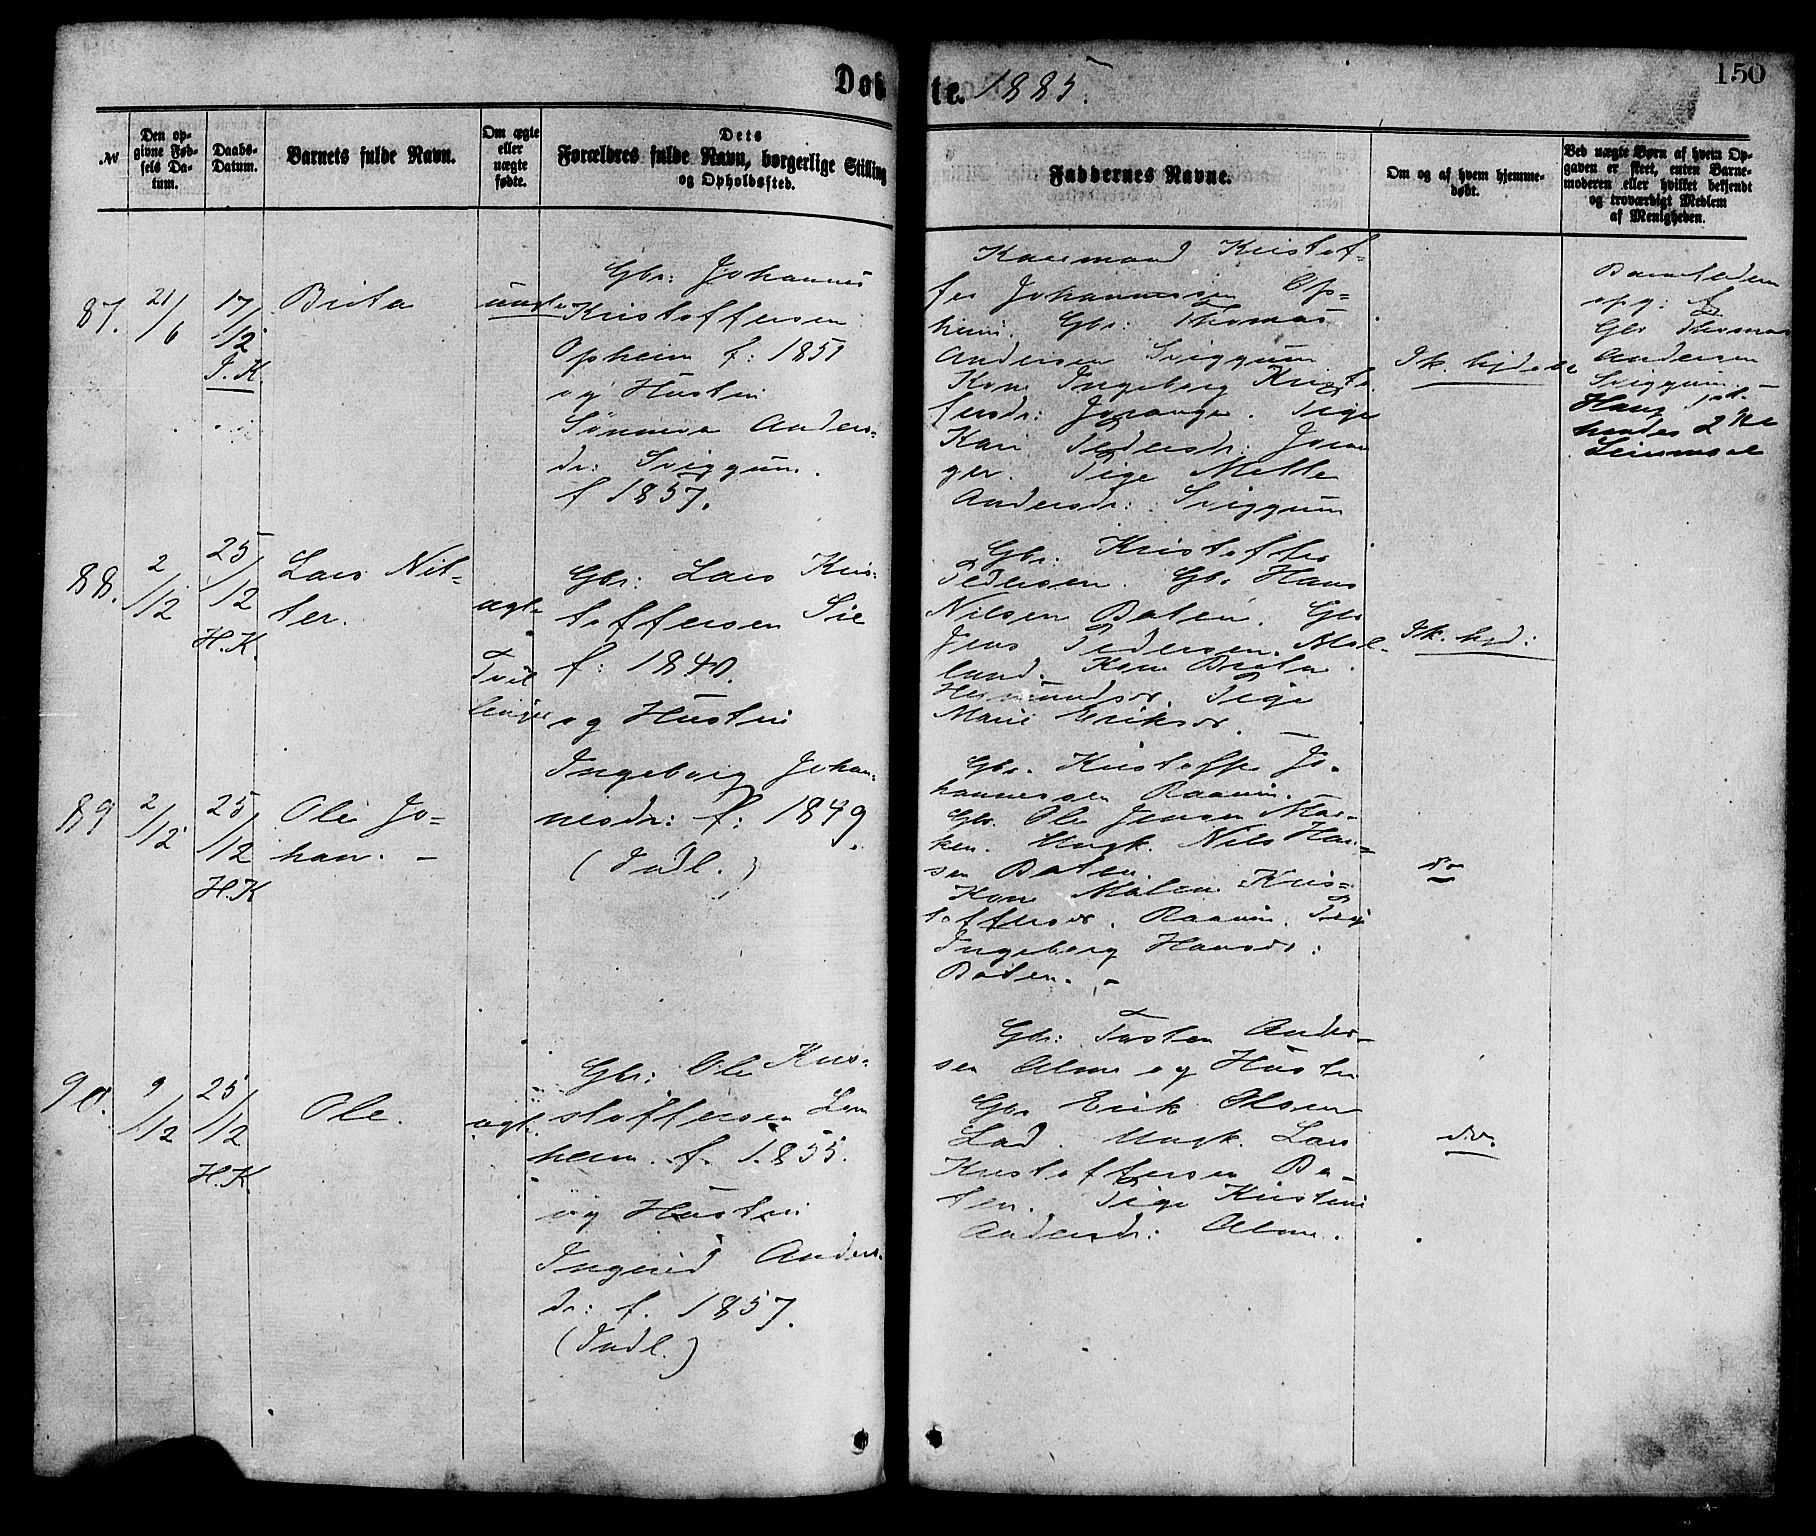 Døbte. 1885.
150
№
Den opgivne Fødsels Datum.
Daabs-Datum.
Barnets fulde Navn.
Om ægte eller uægte fødte.
Dets Forældres fulde Navn, borgerlige Stilling og Opholdssted.
Faddernes Navne.
Om og af hvem hjemmedøbt.
Ved uægte Børn af hvem Opgaven er skeet, enten Barnemoderen eller hvilket bekjendt og troværdigt Medlem af Menigheden.
87. 21/6 17/12 J.K.
Brita
uægte
Gbr: Johannes
Kristoffersen
Opheim f: 1851
og Hustru
Sønneva Anders-
dr: Sviggum.
f 1857.
Kaarmand Kristof-
fer Johannessen Op-
heim. Gbr: Thomas
Andersen Sviggum
Kone Ingeborg Kristo
fersdr: Joranger. Pige
Kari Pedersdr: Joran
ger. Pige Mette
Andersdr: Sviggum
Ik. hjdøbt
Barnefaderen
opg: af
Gbr Thomas
Andersen
Sviggum. -
Hans 1st
hendes 2det
Leiermaal
88. 2/12 25/12 H.K.
Lars Nil-
ter.
ægte
Tvil
linger
Gbr: Lars Kris-
toffersen Sie
f: 1840.
og Hustru
Ingeborg Johan-
nesdr: f: 1849.
(Indl.)
Gbr. Kristoffer
Pedersen. Gbr Hans
Nilsen Boten. Gbr
Jens Pedersen Mol-
land. Kone Brita
Hermundsdr. Pige
Marie Eriksdr.
Ik. hjd:
89 2/12 25/12 H.K
Ole Jo-
han. -
Gbr. Kristoffer Jo-
hannessen Raaum.
Gbr. Ole Jensen Mar-
ken. Ungk. Nils Han-
sen Boten.
Kone Malene Kris-
toffersdr. Raaum. Pige
Ingeborg Hansdr:
Boten. -
do
90. 9/12 25/12 H.K.
Ole.
ægte.
Gbr: Ole Kris-
stoffersen Lom
heim. f. 1855.
og Hustru
Ingerid Anders-
dr: f. 1857.
(Indl.)
Gbr: Tosten Ander-
sen Alme og Hustru
Gbr Erik Olsen
Lad. Ungk. Lars
Kristoffersen Bo-
ten. Pige Kristine
Andersdr: Alme.
do.